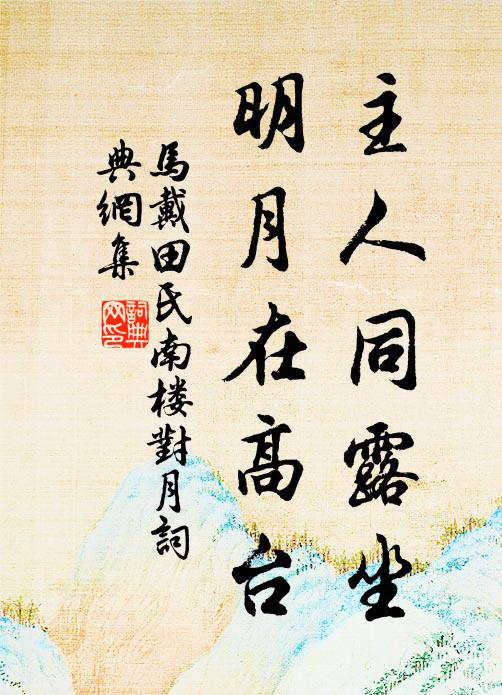 主人同露坐
明月在高台
馬戴田氏南楼對月詞
典網集
詞典
网印